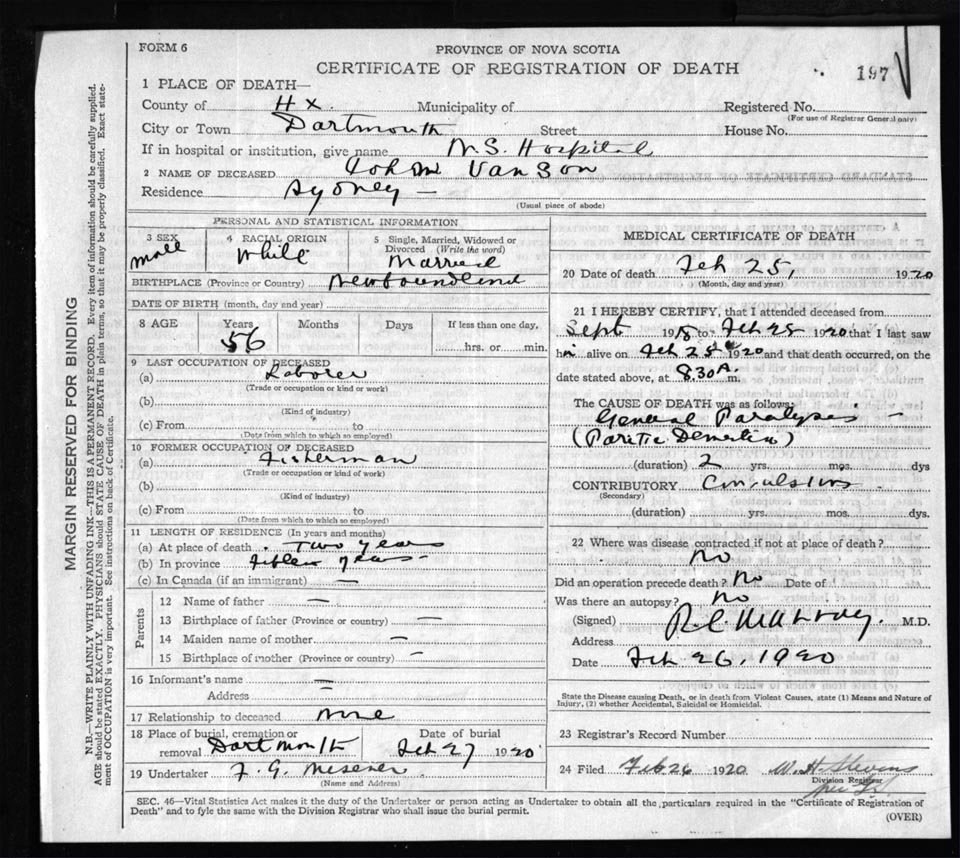 FORM 6
PROVINCE OF NOVA SCOTIA
CERTIFICATE OF REGISTRATION OF DEATH
197
1 PLACE OF DEATH—
County of Hx. Municipality of Registered No.
(For use of Registrar General only)
City or Town Dartmouth Street House No.
If in hospital or institution, give name N.S. Hospital
2 NAME OF DECEASED John Vanson
Residence Sydney —
(Usual place of abode)
PERSONAL AND STATISTICAL INFORMATION
3 SEX
male
4 RACIAL ORIGIN
White
5 Single, Married, Widowed or Divorced (Write the word)
Married
BIRTHPLACE (Province or Country) Newfoundland
DATE OF BIRTH (month, day and year)
8 AGE Years Months Days If less than one day,
56 hrs. or min.
9 LAST OCCUPATION OF DECEASED
(a) Laborer
(Trade or occupation or kind or work)
(b)
(Kind of industry)
(c) From to
(Date from which to which so employed)
10 FORMER OCCUPATION OF DECEASED
(a) Fisherman
(Trade or occupation or kind of work)
(b)
(Kind of industry)
(c) From to
(Date from which to which so employed)
11 LENGTH OF RESIDENCE (In years and months)
(a) At place of death Two years
(b) In province years
(c) In Canada (if an immigrant) —
Parents
12 Name of father —
13 Birthplace of father (Province or country) —
14 Maiden name of mother —
15 Birthplace of mother (Province or country) —
16 Informant's name —
Address —
17 Relationship to deceased none
18 Place of burial, cremation or Date of burial
removal Dartmouth Feb 27 1920
19 Undertaker
(Name and Address)
MEDICAL CERTIFICATE OF DEATH
20 Date of death Feb 25, 1920
(Month, day and year)
21 I HEREBY CERTIFY, that I attended deceased from
Sept 1918 to Feb 25 1920 that I last saw
him alive on Feb 25 1920 and that death occurred, on the
date stated above, at 8.30 A. m.
The CAUSE OF DEATH was as follows:
General Paralysis —
(Paretic Dementia)
(duration) 2 yrs. mos. dys
CONTRIBUTORY Convulsions
(Secondary)
(duration) yrs. mos. dys.
22 Where was disease contracted if not at place of death?
no
Did an operation precede death? no Date of
Was there an autopsy? no
(Signed) M.D.
Address
Date Feb 26, 1920
State the Disease causing Death, or in death from Violent Causes, state (1) Means and Nature of
Injury, (2) whether Accidental, Suicidal or Homicidal.
23 Registrar's Record Number
24 Filed Feb 26 1920 W. H. Stevens
Division Registrar
SEC. 46—Vital Statistics Act makes it the duty of the Undertaker or person acting as Undertaker to obtain all the particulars required in the "Certificate of Registration of
Death" and to fyle the same with the Division Registrar who shall issue the burial permit.
(OVER)
MARGIN RESERVED FOR BINDING
N.B.—WRITE PLAINLY WITH UNFADING INK—THIS IS A PERMANENT RECORD. Every item of information should be carefully supplied.
AGE should be stated EXACTLY. PHYSICIANS should STATE CAUSE OF DEATH in plain terms, so that it may be properly classified. Exact state-
ment of OCCUPATION is very important. See instructions on back of Certificate.